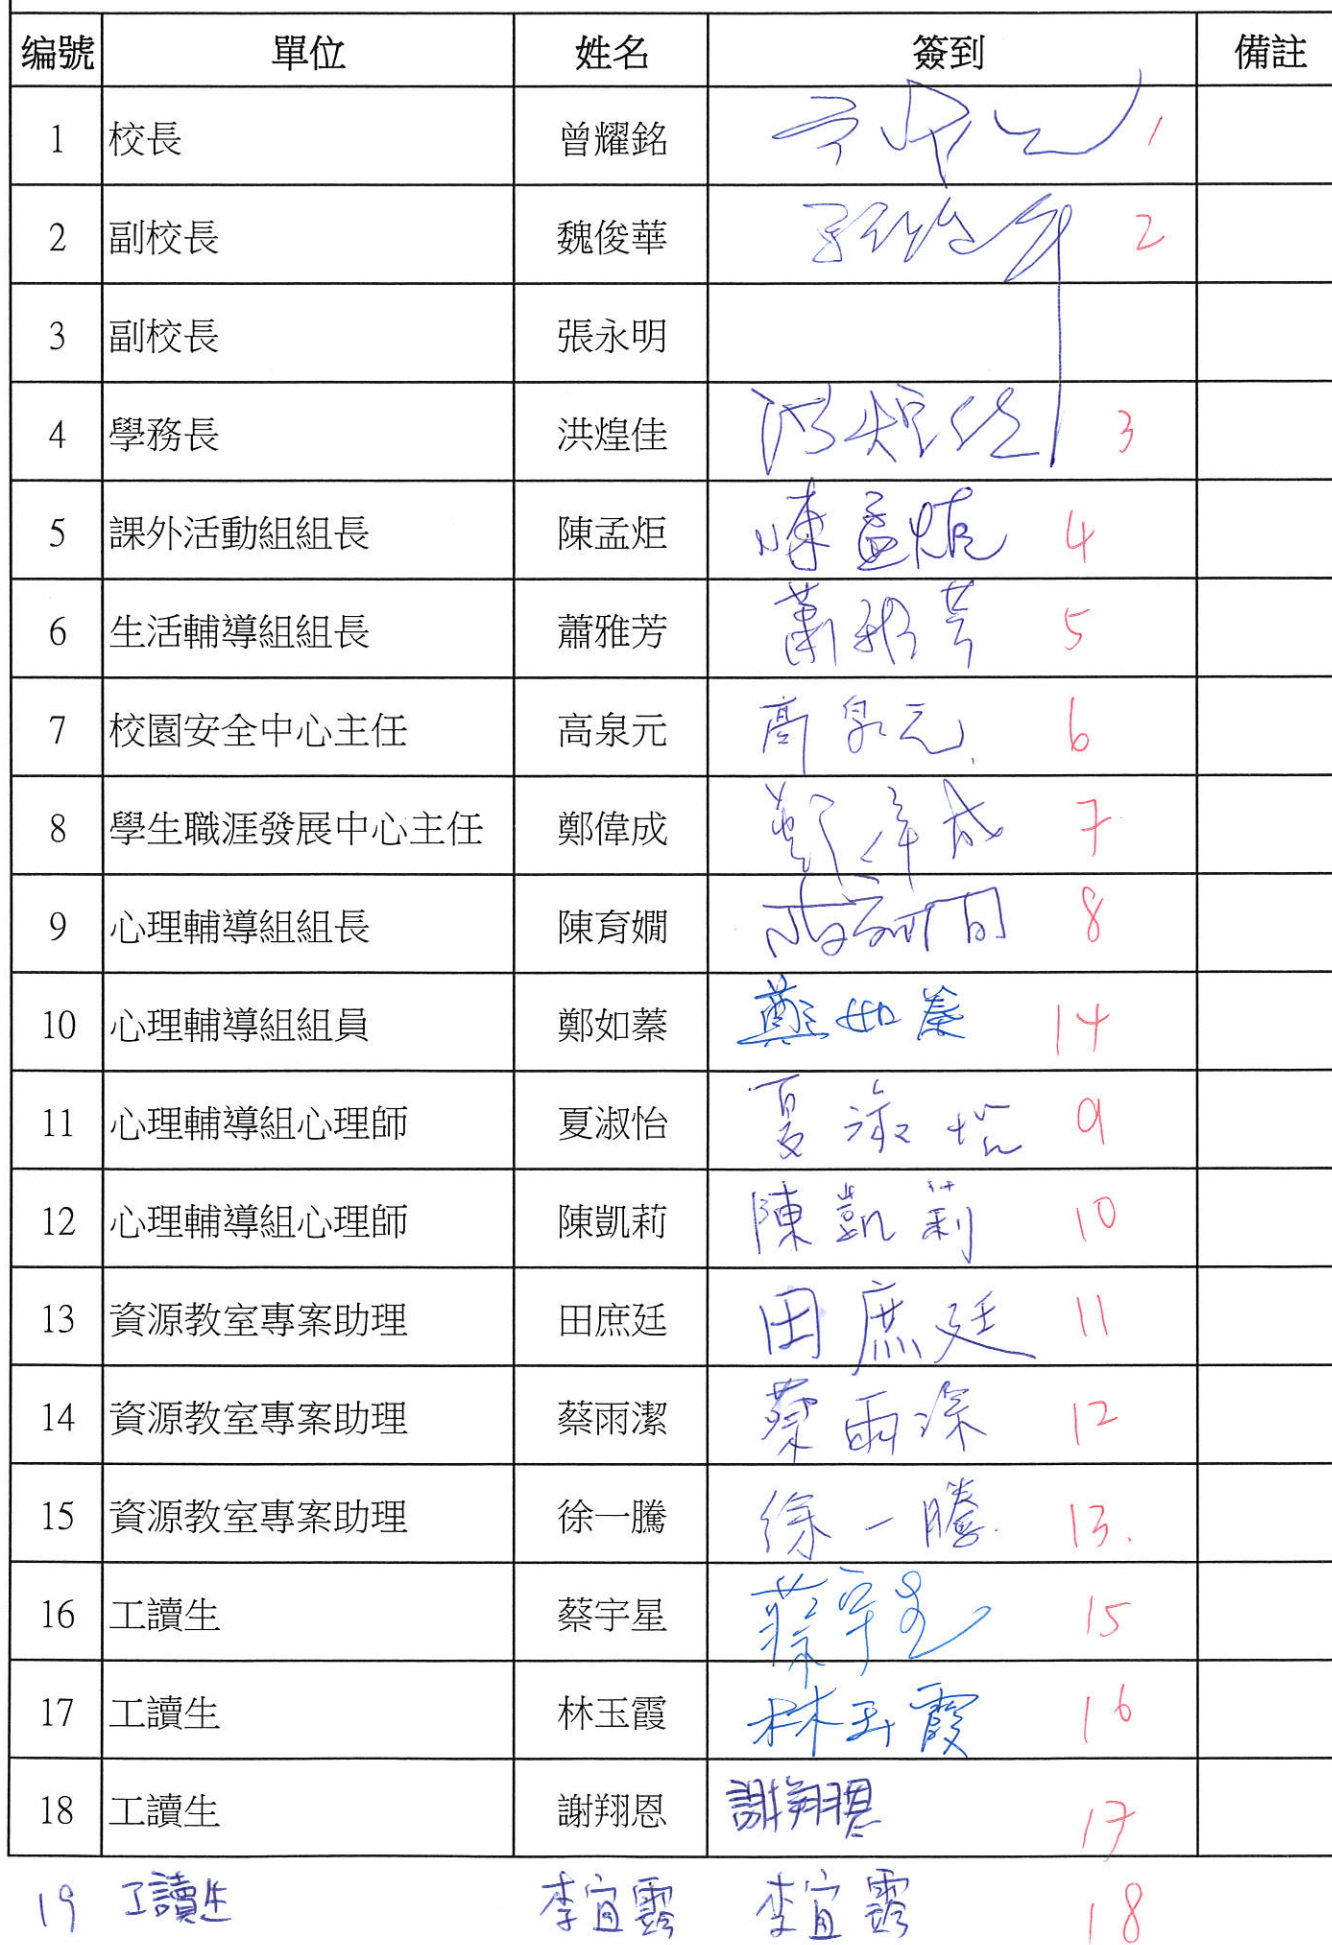 编號 單位 姓名 簽到 備註
1 校長 曾耀銘 1
2 副校長 魏俊華 2
3 副校長 張永明
4 學務長 洪煌佳 洪煌佳 3
5 課外活動組組長 陳孟炬 陳孟炬 4
6 生活輔導組組長 蕭雅芳 蕭雅芳 5
7 校園安全中心主任 高泉元 高泉元 6
8 學生職涯發展中心主任 鄭偉成 鄭偉成 7
9 心理輔導組組長 陳育嫺 8
10 心理輔導組組員 鄭如蓁 鄭如蓁 14
11 心理輔導組心理師 夏淑怡 夏淑怡 9
12 心理輔導組心理師 陳凱莉 陳凱莉 10
13 資源教室專案助理 田庶廷 田庶廷 11
14 資源教室專案助理 蔡雨潔 蔡雨潔 12
15 資源教室專案助理 徐一騰 徐一騰 13.
16 工讀生 蔡宇星 蔡宇星 15
17 工讀生 林玉霞 林玉霞 16
18 工讀生 謝翔恩 謝翔恩 17
19 工讀生 李宜霛 李宜霛 18